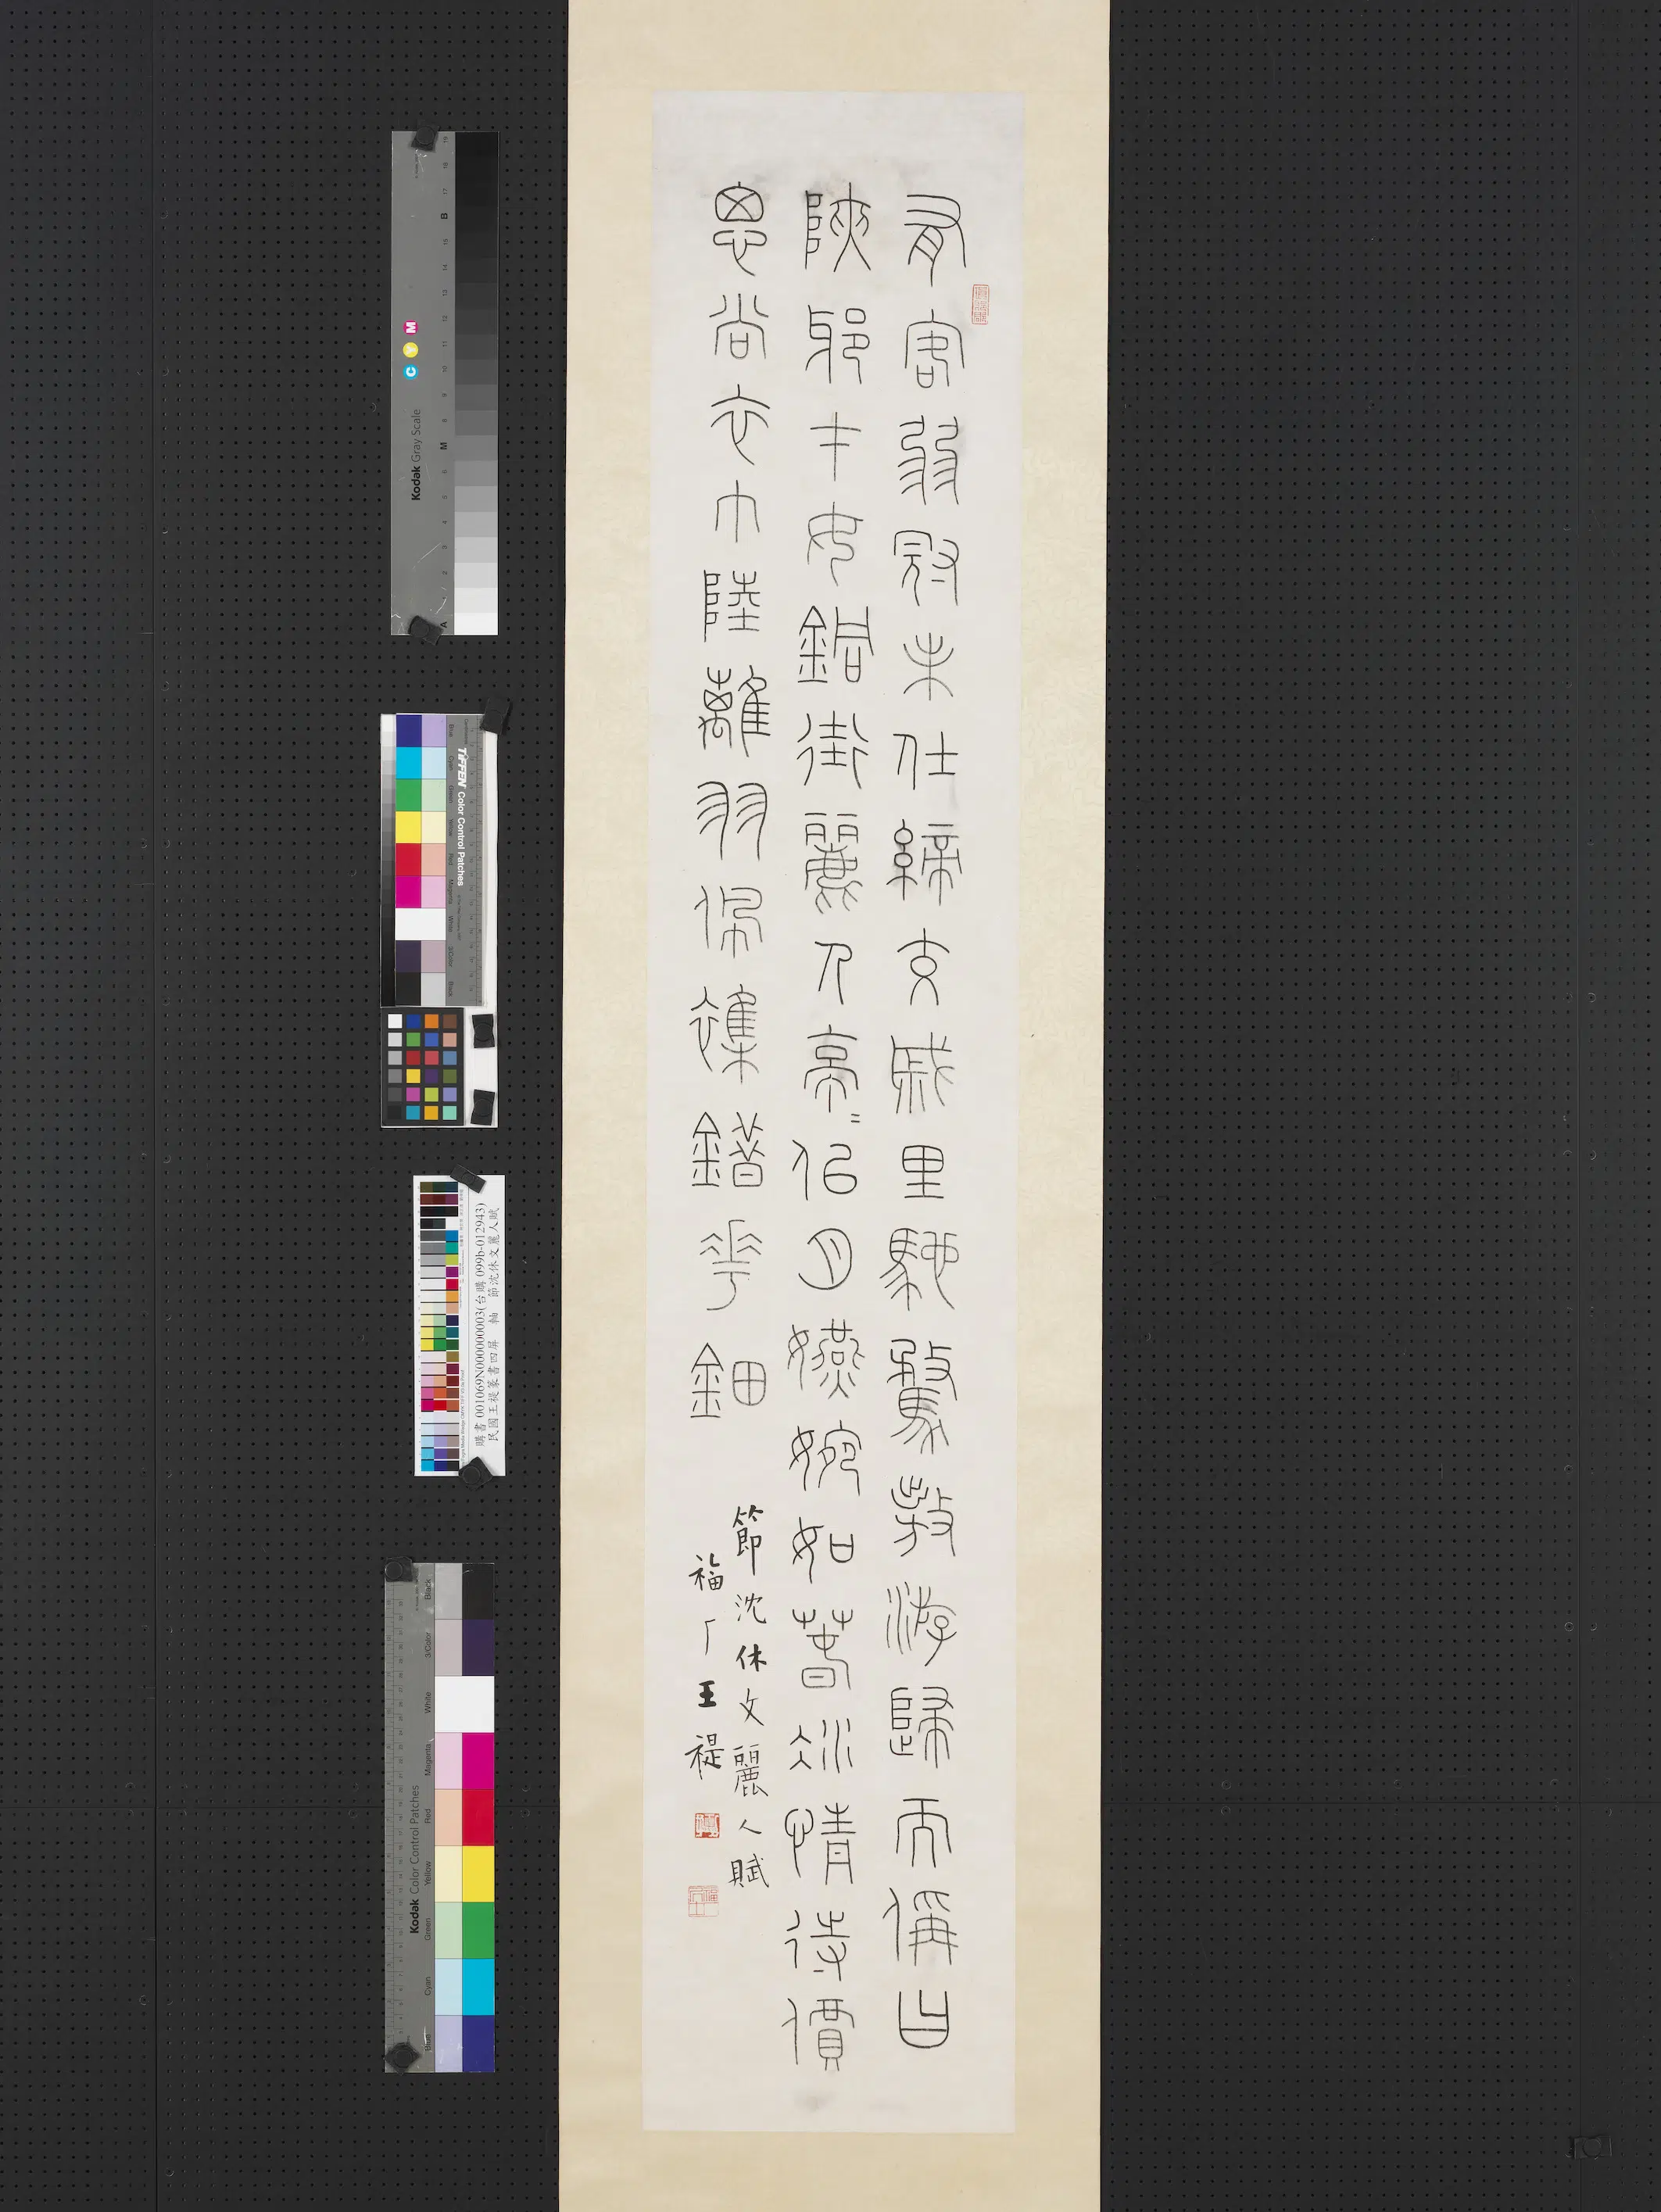 有客弱冠未仕締交戚里馳騖敖游歸而偁曰
陜邪才女銅街麗人亭〻佀月嬿婉如萅冰情待價
思尚衣巾陸離羽佩雜錯華鈿
節沈休文麗人賦
福厂王禔
Kodak Gray Scale
C Y M
A
M
B
TIFFEN Color Control Patches
Blue Cyan Green Yellow Red Magenta White 3/Color Black
購書 001069N000000003(台購 099b-012943)
民國王禔篆書四屏 軸 節沈休文麗人賦
Kodak Color Control Patches
Blue Cyan Green Yellow Red Magenta White 3/Color Black